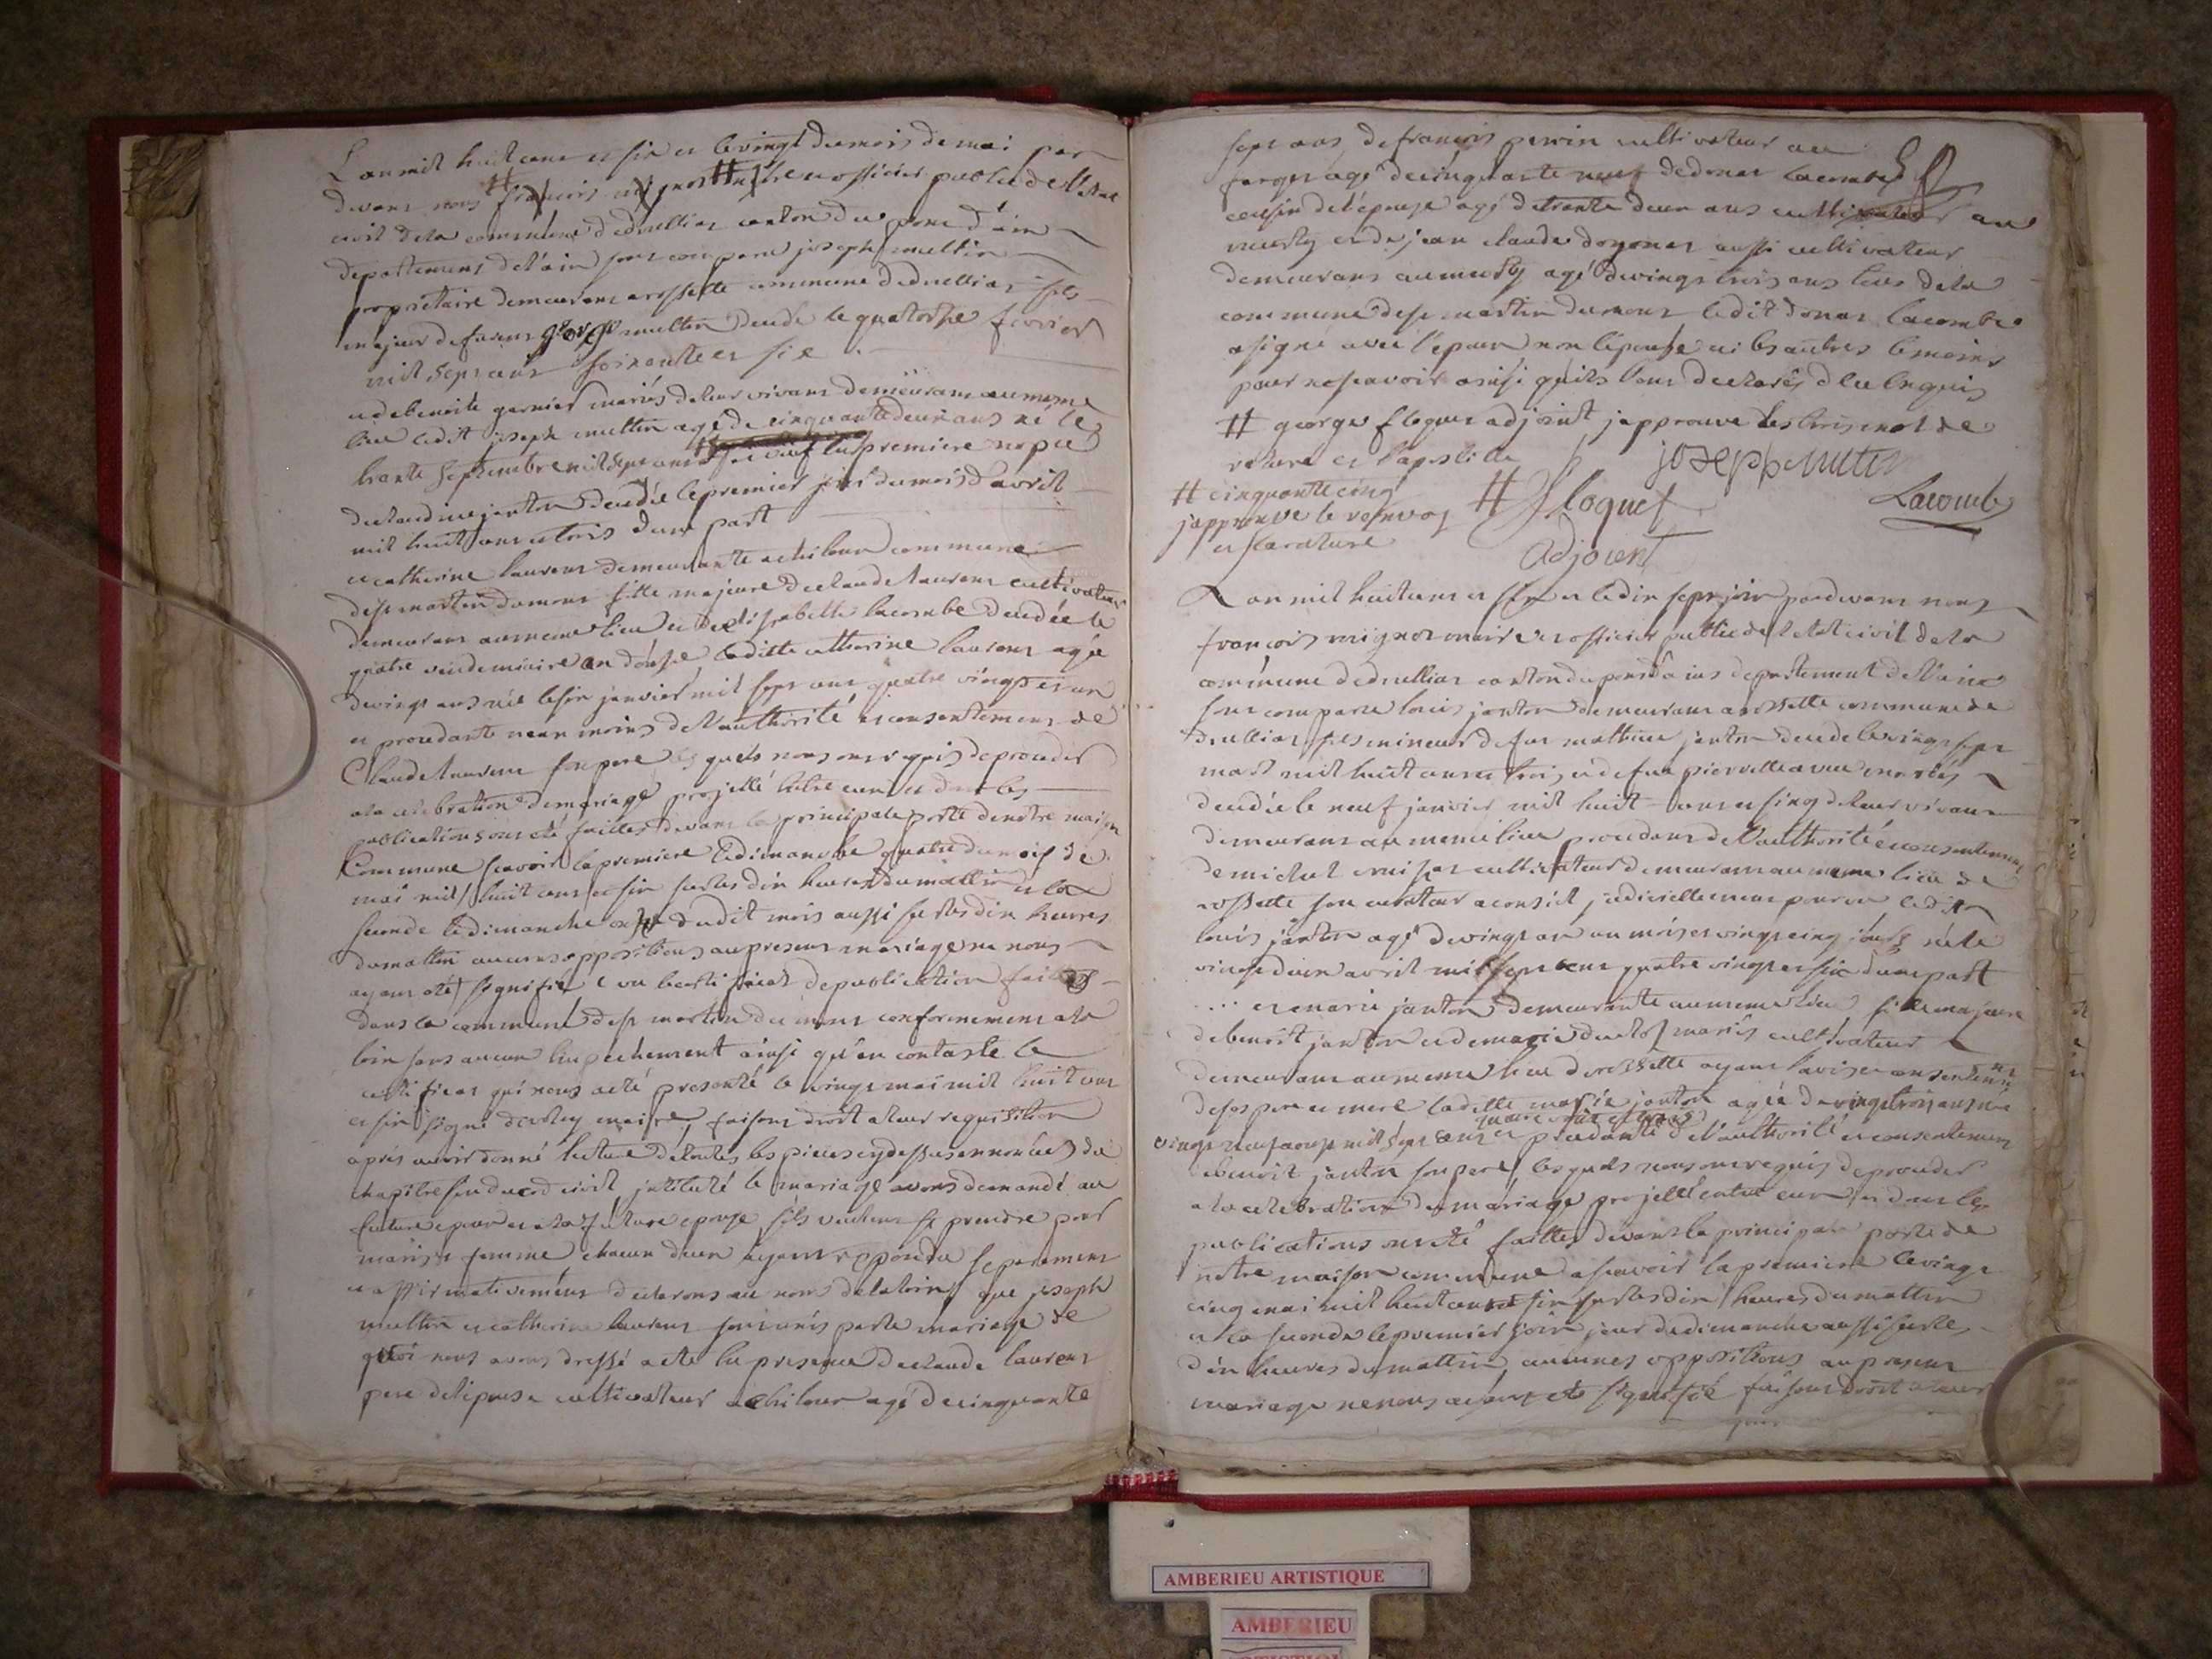 L an mil huit cens et six et le vingt du mois de mai par
devant nous # françois mignot # maire et officier public de l'état
civil de la commune de druillias canton du pont d'ain
departement de l'ain sont comparu joseph muttin
propriétaire demeurant a rossette commune de druillias fils
majeur de furent george muttin decedé le quatorze fevrier
mil sept cens soixante et six
et de benoite garnier mariés de leur vivans demeurans au meme
lieu ledit joseph muttin agé de cinquante deux ans né le
trente septembre mil sept cens # veuf en premiere nopce
de claudine janton decedée le premier jour du mois d'avril
mil huit cens et trois d'une part
et catherine laurent demeurante a chiloup commune
de st martin du mont fille majeure de claude laurent cultivateur
demeurant au meme lieu et de elisabette lacombe decedée le
quatre vendemiaire an douse laditte catherine laurent agée
de vingt ans née le six janvier mil sept cens quatre vingt et un
et procedante nean moins de l'authorité et consentement de
Claude laurent son pere les quels nous ont requis de proceder
a la celebration de mariage projetté entre eux et dont les
publications ont été faittes devant la principale porte de notre maison
Commune scavoir la premiere le dimanche quatre du mois de
mai mil huit cens et six sur les dix heures du mattin et la
seconde le dimanche onze dudit mois aussi sur les dix heures
du mattin aucunes oppositions au present mariage ne nous
ayant eté signifié vu le certificat de publication faittes
dans la commune de st martin du mont conformement a la
loix sans aucun empechement ainsi qu'en contaste le
certificat qui nous a eté presenté le vingt mai mil huit cens
et six signé maire, faisant droit a leur requisition
aprés avoir donné lecture de touttes les pieces cy dessus ennoncées du
chapitre six du code civil intitulé le mariage avons demandé au
future epoux et a la future epouse s'ils veulent se prendre pour
maris et femme chacun d'eux ayant reponda separement
et affirmativement declarons au nom de la loix que joseph
muttin et catherine laurent sont unis par le mariage de
quoi nous avons dressé acte en presence de claude laurent
pere de l'epouse cultivateur a chiloup agé de cinquante
sept ans de françois perrin cultivateur au
farget agé de cinquante neuf de donat lacombe
cousin de l'épouse agé de trente deux ans cultivateur au
et de jean claude doyonax aussi cultivateur
demeurans au agé de vingt trois ans tous de la
commune de st martin du mont ledit donat lacombe
a signé avec l'epoux non l'épouse ni les autres temoins
pour ne scavoir ainsi qu'ils l'ont declarés de ce enquis
# george floquet adjoint japprouve les trois mot de
rature et l'apostille
joseph muttin
# cinquante cinq
japprouve le renvoy
et la rature
# Floquet
adjoient
Lacombe
L an mil huit cens et six et le dix sept juin par devant nous
françois mignot maire et officier public de l'etat civil de la
commune de druillias canton du pont d'ains departement de l'ain
sont comparu louis janton demeurans a rossette commune de
druillias fils mineur de feu mathieu janton decedé le vingt sept
mars mil huit cens et trois et de feue mariés
decedée le neuf janvier mil huit cens et cinq de leur vivans
demeurans au meme lieu procedans de l'authorité et consentement
de michel cultivateur demeurans au meme lieu de
rossette son curateur a conseil judiciellement pourvu ledit
louis janton agé de vingt an un mois et vingt cinq jours né le
vingt deux avril mil sept cens quatre vingt et six d'une part
et marie janton demeurante au meme lieu fille majeure
de benoit janton et de marie mariés cultivateur
demeurans au meme lieu de rossette ayans l'avis et consentement
de ses pere et mere laditte marie janton agée de vingt trois ans née
quatre vingt et trois
vingt neuf aoust mil sept cens et procedante de l'authorité et consentement
de benoit janton son pere les quels nous ont requis de proceder
a la celebration du mariage projetté entre eux et dont les
publications ont eté faittes devant la principale porte de
notre maison commune a scavoir la premiere le vingt
cinq mai mil huit cens et six sur les dix heures du mattin
et la seconde le premier juin jour de dimanche aussi sur les
dix heures du mattin, aucunes oppositions au present
mariage ne nous ayant eté signifié faisans droit a leur
AMBERIEU ARTISTIQUE
AMBERIEU
ARTISTIQUE